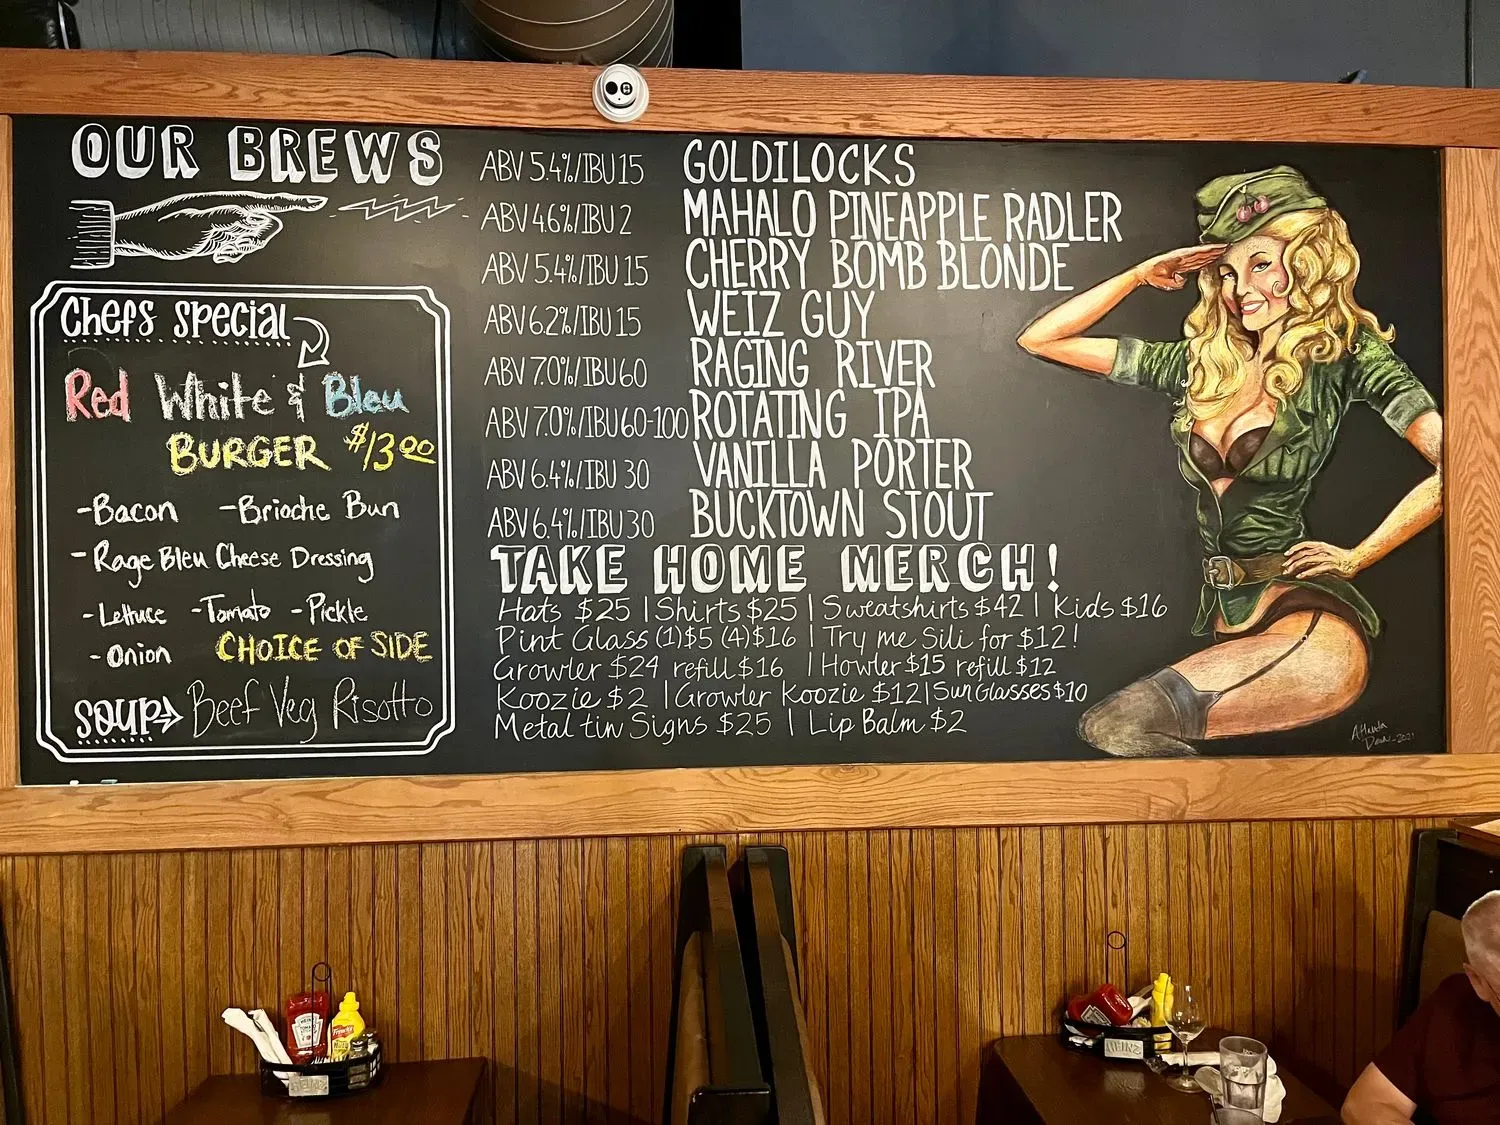 OUR BREWS
Chefs Special
Red White & Bleu
BURGER $13.00
-Bacon -Brioche Bun
-Rage Bleu Cheese Dressing
-Lettuce -Tomato -Pickle
-Onion CHOICE OF SIDE
SOUP Beef Veg Risotto
ABV 5.4%/IBU 15 GOLDILOCKS
ABV 4.6%/IBU 2 MAHALO PINEAPPLE RADLER
ABV 5.4%/IBU 15 CHERRY BOMB BLONDE
ABV 6.2%/IBU 15 WEIZ GUY
ABV 7.0%/IBU 60 RAGING RIVER
ABV 7.0%/IBU 60-100 ROTATING IPA
ABV 6.4%/IBU 30 VANILLA PORTER
ABV 6.4%/IBU 30 BUCKTOWN STOUT
TAKE HOME MERCH!
Hats $25 | Shirts $25 | Sweatshirts $42 | Kids $16
Pint Glass (1)$5 (4)$16 | Try me Sili for $12!
Growler $24 refill $16 | Howler $15 refill $12
Koozie $2 | Growler Koozie $12 | SunGlasses $10
Metal tin Signs $25 | Lip Balm $2
2021
HEINZ
HEINZ
HEINZ